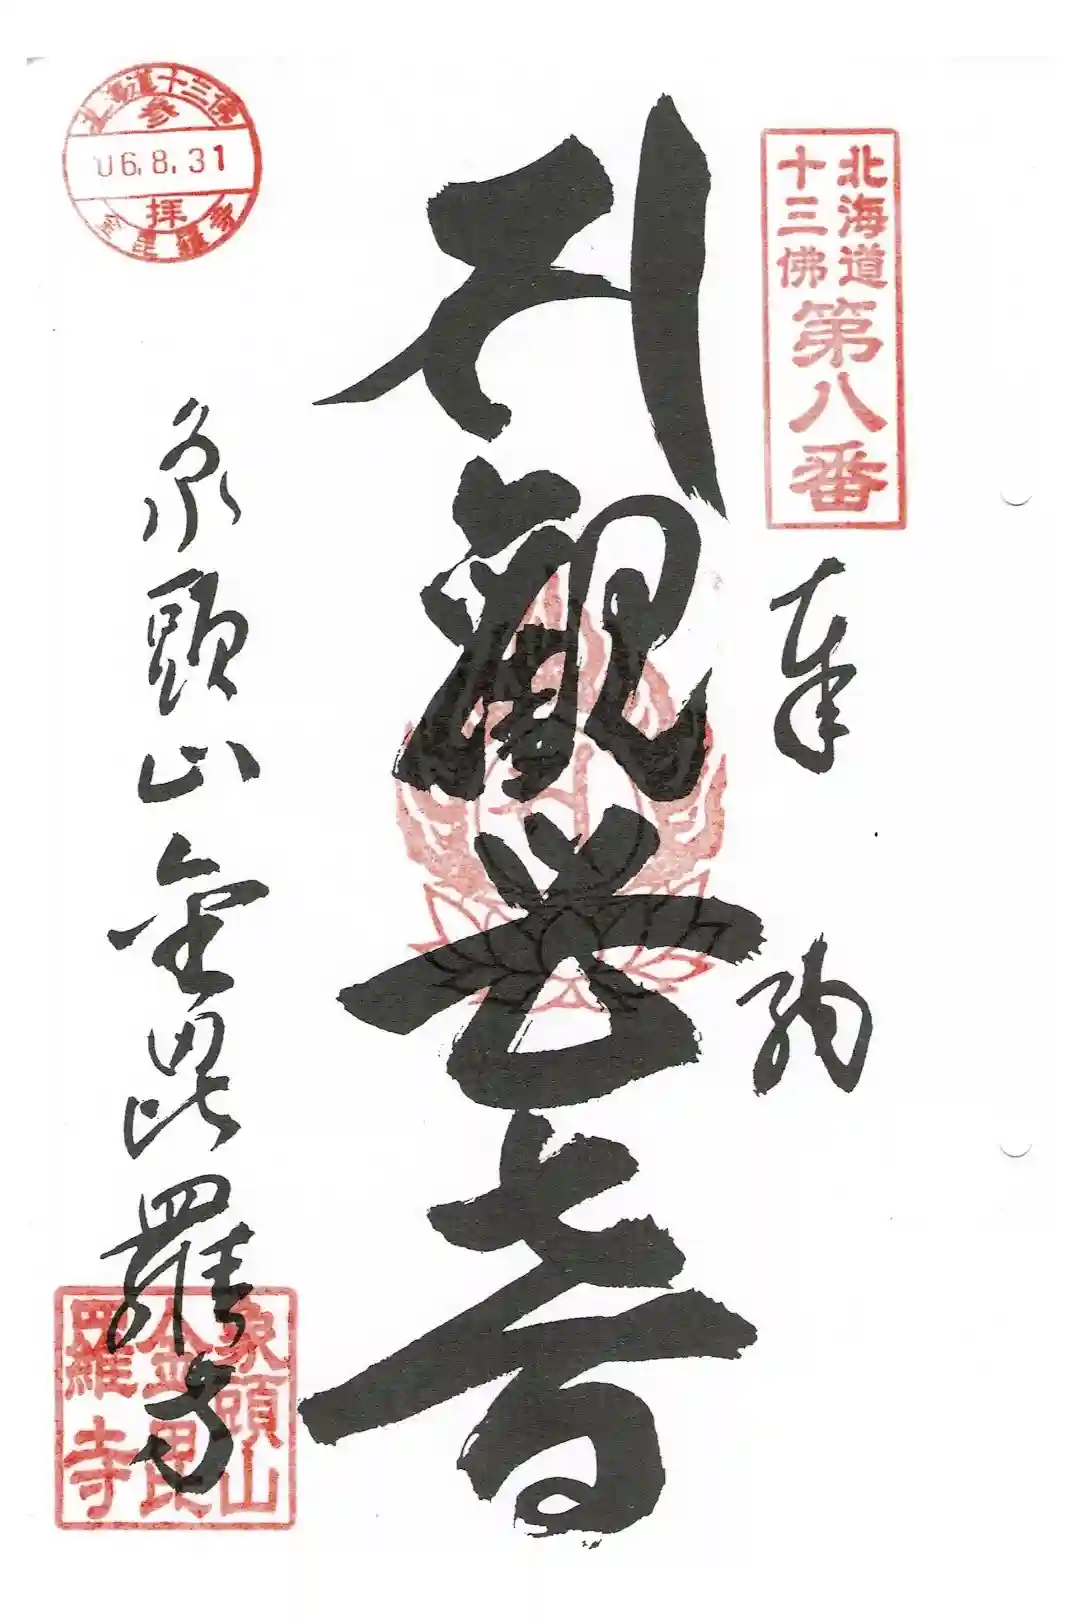 北海道
十三佛
第八番
奉納
𑖭観世音
北海道十三佛
参
06.8.31
拝
金毘羅寺
象頭山金毘羅寺
象頭山
金毘
羅寺